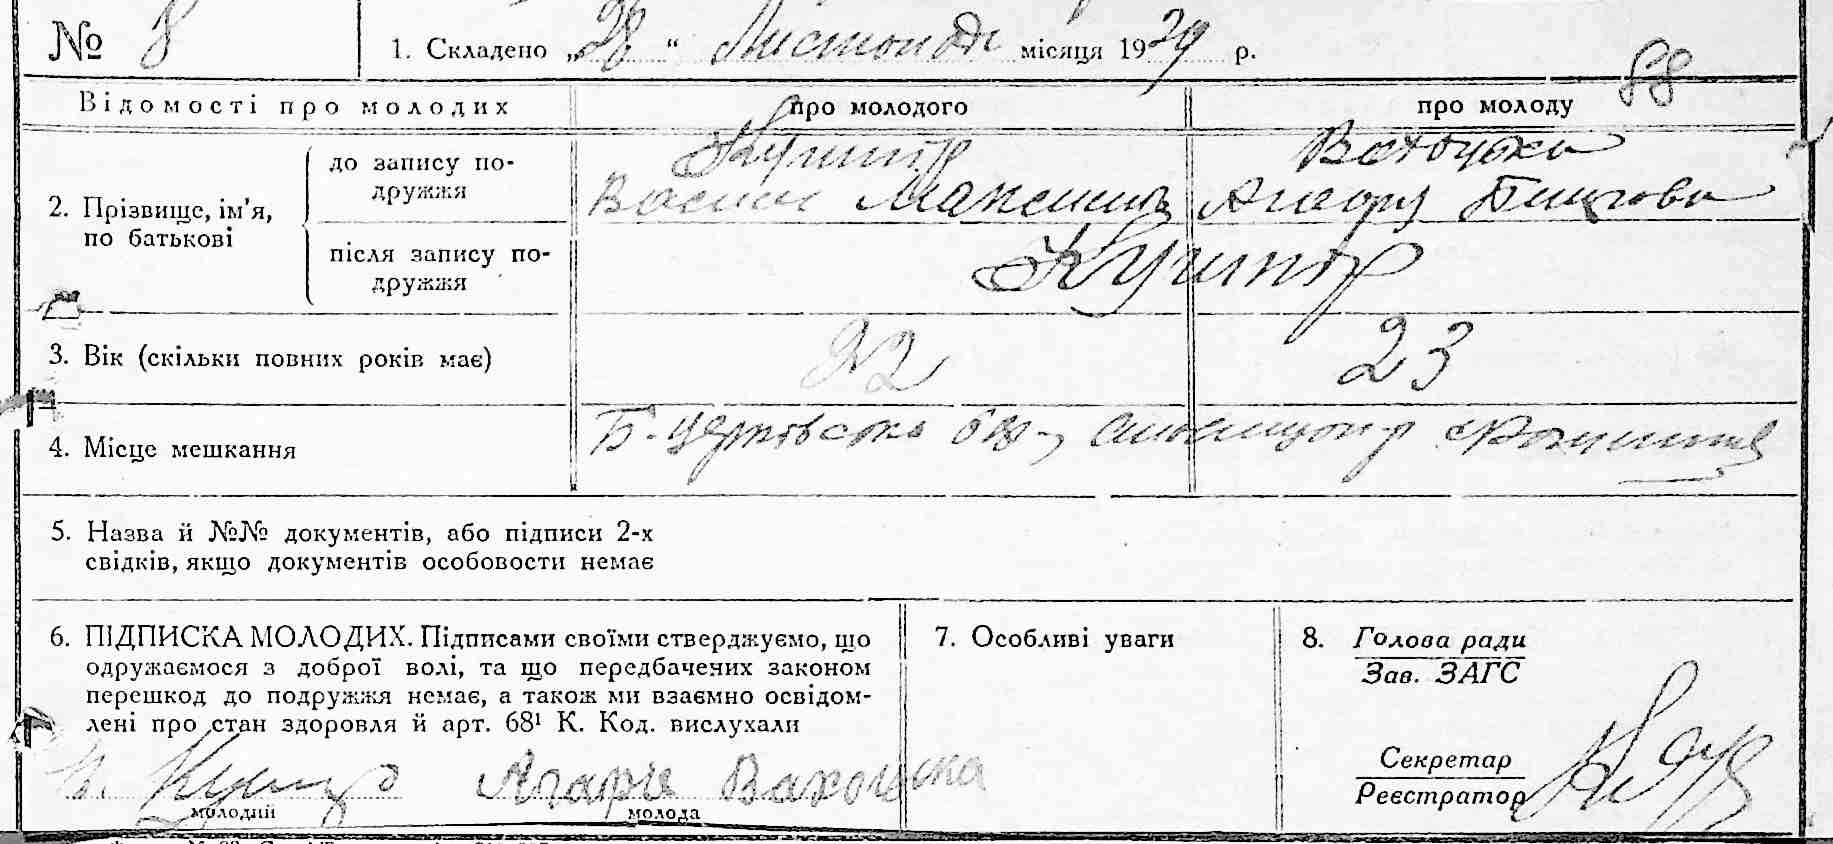 № 8
1. Складено „28“ Листопада місяця 1929 р.
88
Відомості про молодих про молодого про молоду
2. Прізвище, ім’я, по батькові
до запису по-
дружжя
Кушнір
Василь Максимів
Агафія
після запису по-
дружжя
Кушнір
3. Вік (скільки повних років має) 22 23
4. Місце мешкання Б-Церковська
5. Назва й №№ документів, або підписи 2-х
свідків, якщо документів особовости немає
6. ПІДПИСКА МОЛОДИХ. Підписами своїми стверджуємо, що
одружаємося з доброї волі, та що передбачених законом
перешкод до подружжя немає, а також ми взаємно освідом-
лені про стан здоровля й арт. 68¹ К. Код. вислухали
молодий молода
7. Особливі уваги
8. Голова ради
Зав. ЗАГС
Секретар
Реєстратор